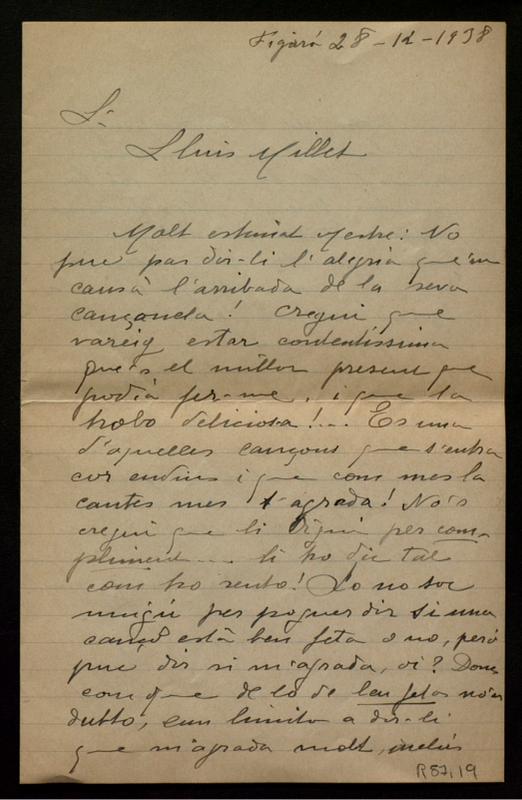 Figaró 28-12-1938
Sr.
Lluis Millet
Molt estimat Mestre: No
puc pas dir-li l'alegria que'm
causà l'arribada de la seva
cançoneta! Cregui que
vareig estar contentíssima
que's el millor present que
podia fer-me, i que la
trobo deliciosa!... Es una
d'aquelles cançons que s'entra
cor endins i que com mes la
cantes mes t'agrada! No's
cregui que li digui per com-
pliment... li ho dic tal
com ho sento! Jo no soc
ningú per poguer dir si una
cançó està ben feta o no, però
puc dir si m'agrada, oi? Doncs
com que de lo de ben feta no'n
dubto, em limito a dir-li
que m'agrada molt, inclús
R 87,19